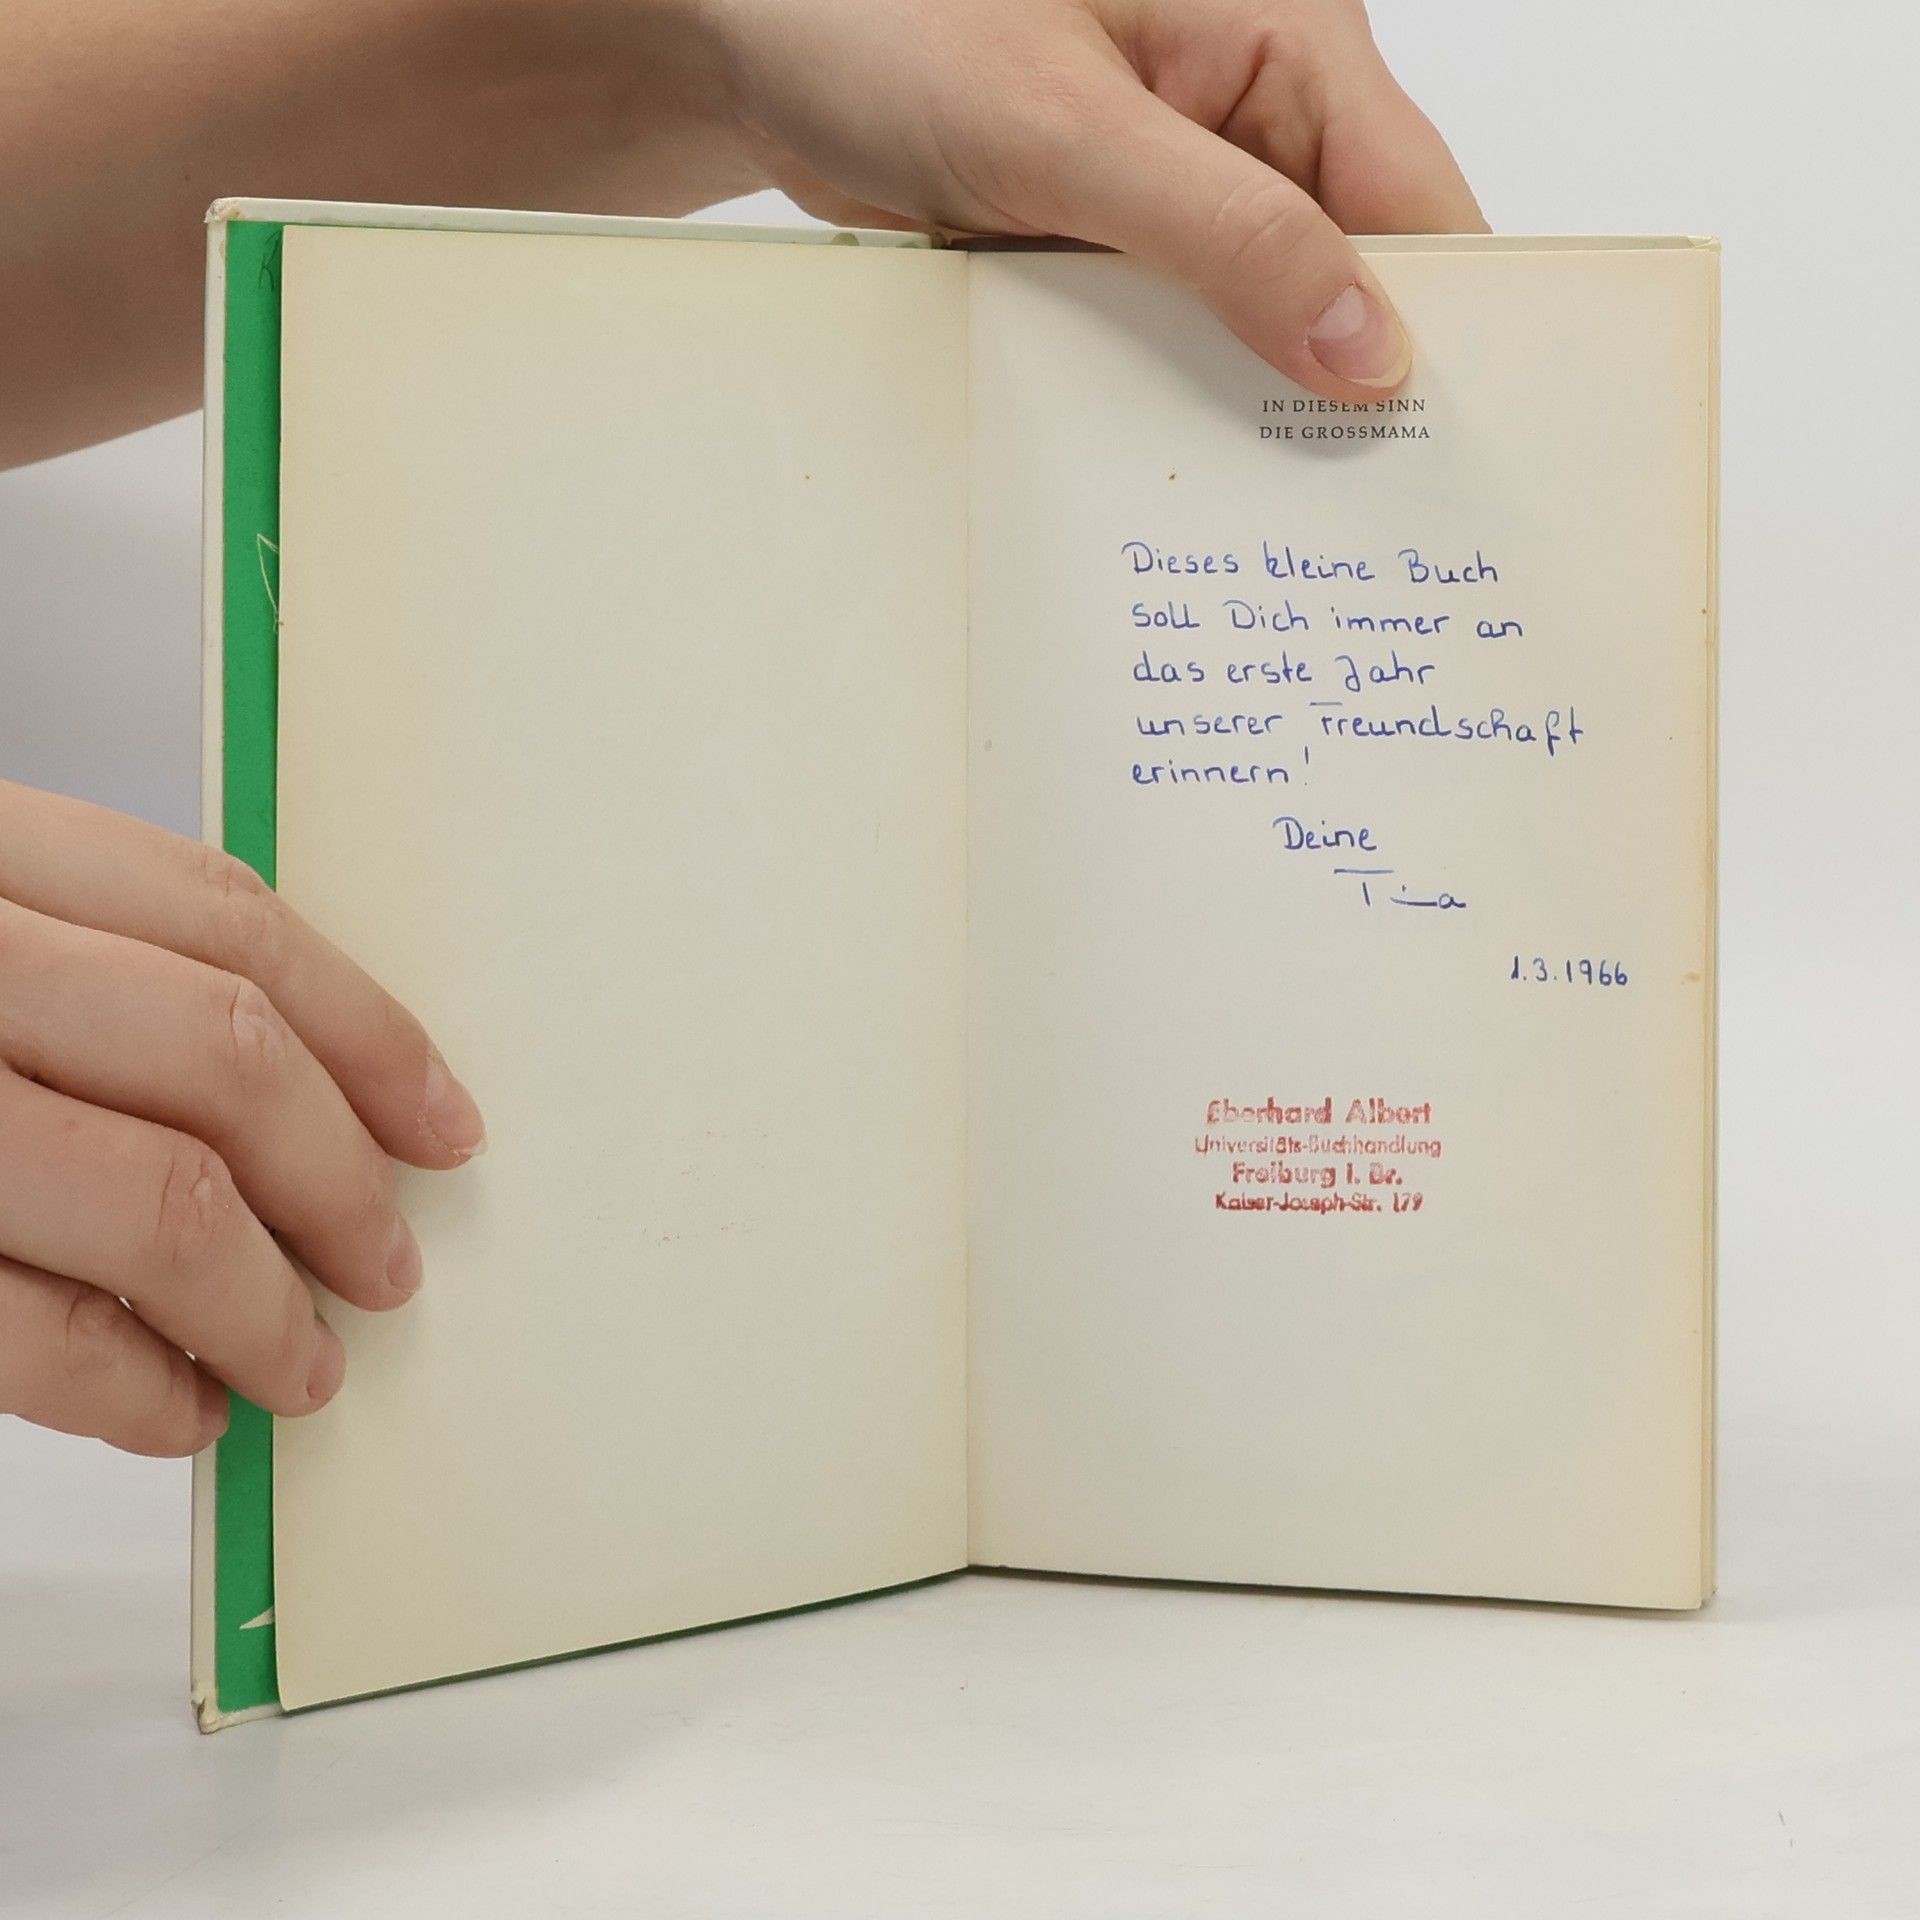 IN DIESEM SINN
DIE GROSSMAMA
Dieses kleine Buch
soll Dich immer an
das erste Jahr
unserer Freundschaft
erinnern!
Deine
Tina
1.3.1966
Eberhard Albert
Universitäts-Buchhandlung
Freiburg i. Br.
Kaiser-Joseph-Str. 179